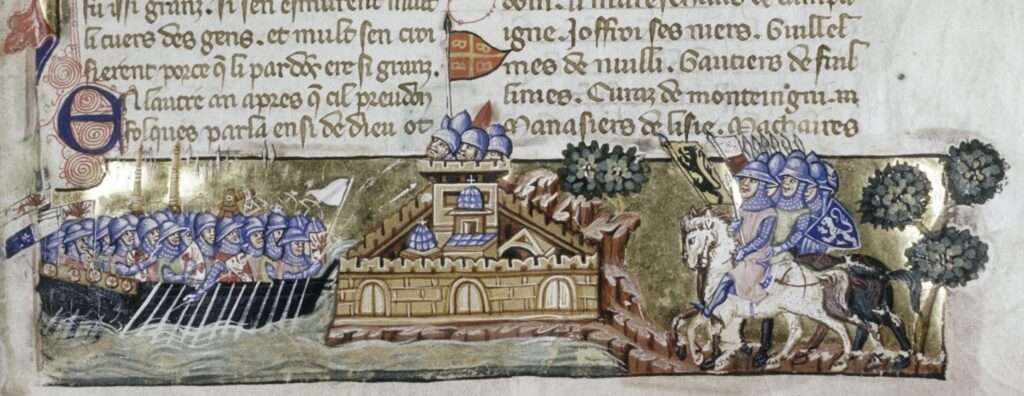 fu issi granz. si sen esmurent mult
li cuers des gens. et mult sen croi
sierent porce q̃ li pardõs ere si granz.
En lautre an apres q̃ cil preudon
folques parla ensi de dieu ot
dom. li mareschaus de campai
igne. Joffroi ses niers. Guillel
mes de nuilli. Gautiers de fuil
limes. Euraz de monteingni.
Manasiers de lisle. Machaires